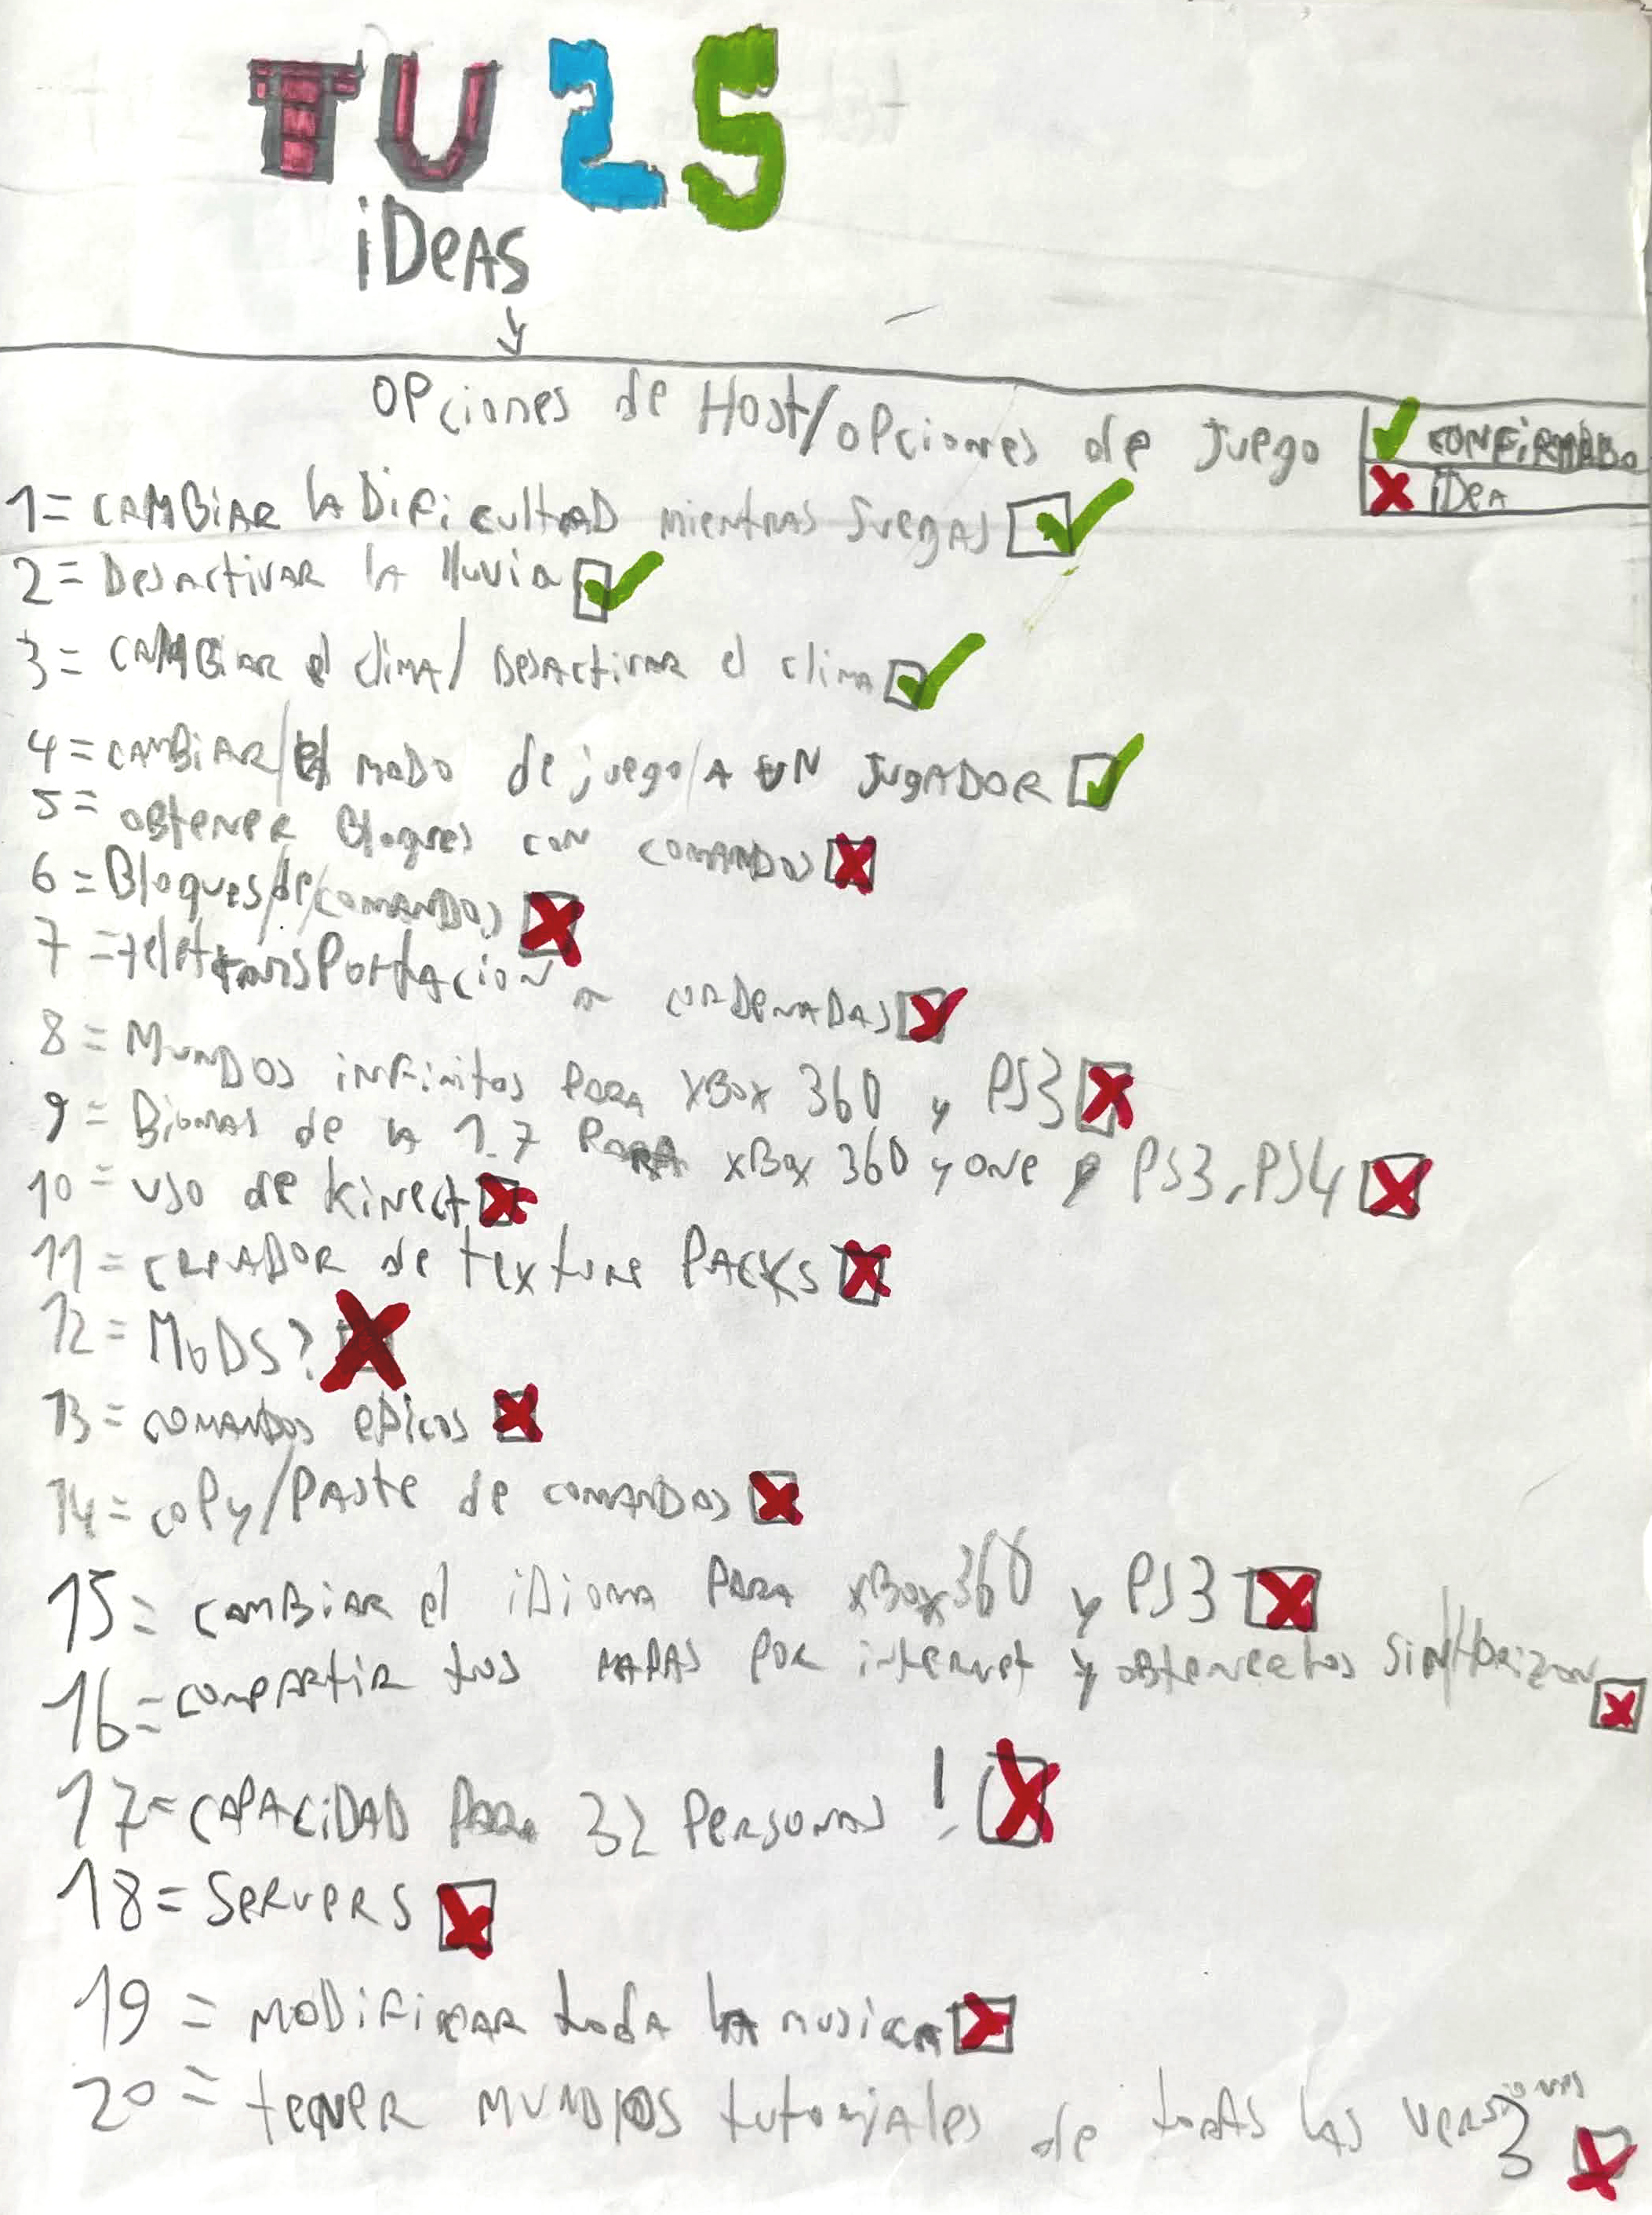 TU 25
iDeAS
OPciones de Host/oPciones de juego
CONFiRMADO
iDeA
1= CAMBiAR lA DiFicultAD mientras juegas
2= DesActivAR lA lluvia
3= CAMBiAR el climA/ DesActivAR el climA
4= CAMBiAR/el moDo de juego/A UN JUgADOR
5= oBtener Bloques con comandos
6= Bloques/de/comAnDos
7 = teletransPortAcion a corDenADAS
8= MunDos infinitos PARA XBox 360 y PS3
9= Biomas de lA 1.7 PARA XBox 360 y one PS3, PS4
10= uso de kinect
11= creADOR de texture PACKS
12= MoDS?
13= comAnDos ePicos
14= coPy/PAste de comAnDos
15= CAMBiAR el iDioma PARA XBox 360 y PS3
16= comPARtir tus MAPAS PoR internet y oBtenerlos Sin/Horizon
17= CAPACiDAD PARA 32 PersonAs!
18= SeRveRS
19= MoDiFicAR todA lA musicA
20= teneR MUNDOS tutoriales de todAs lAs versiones
3